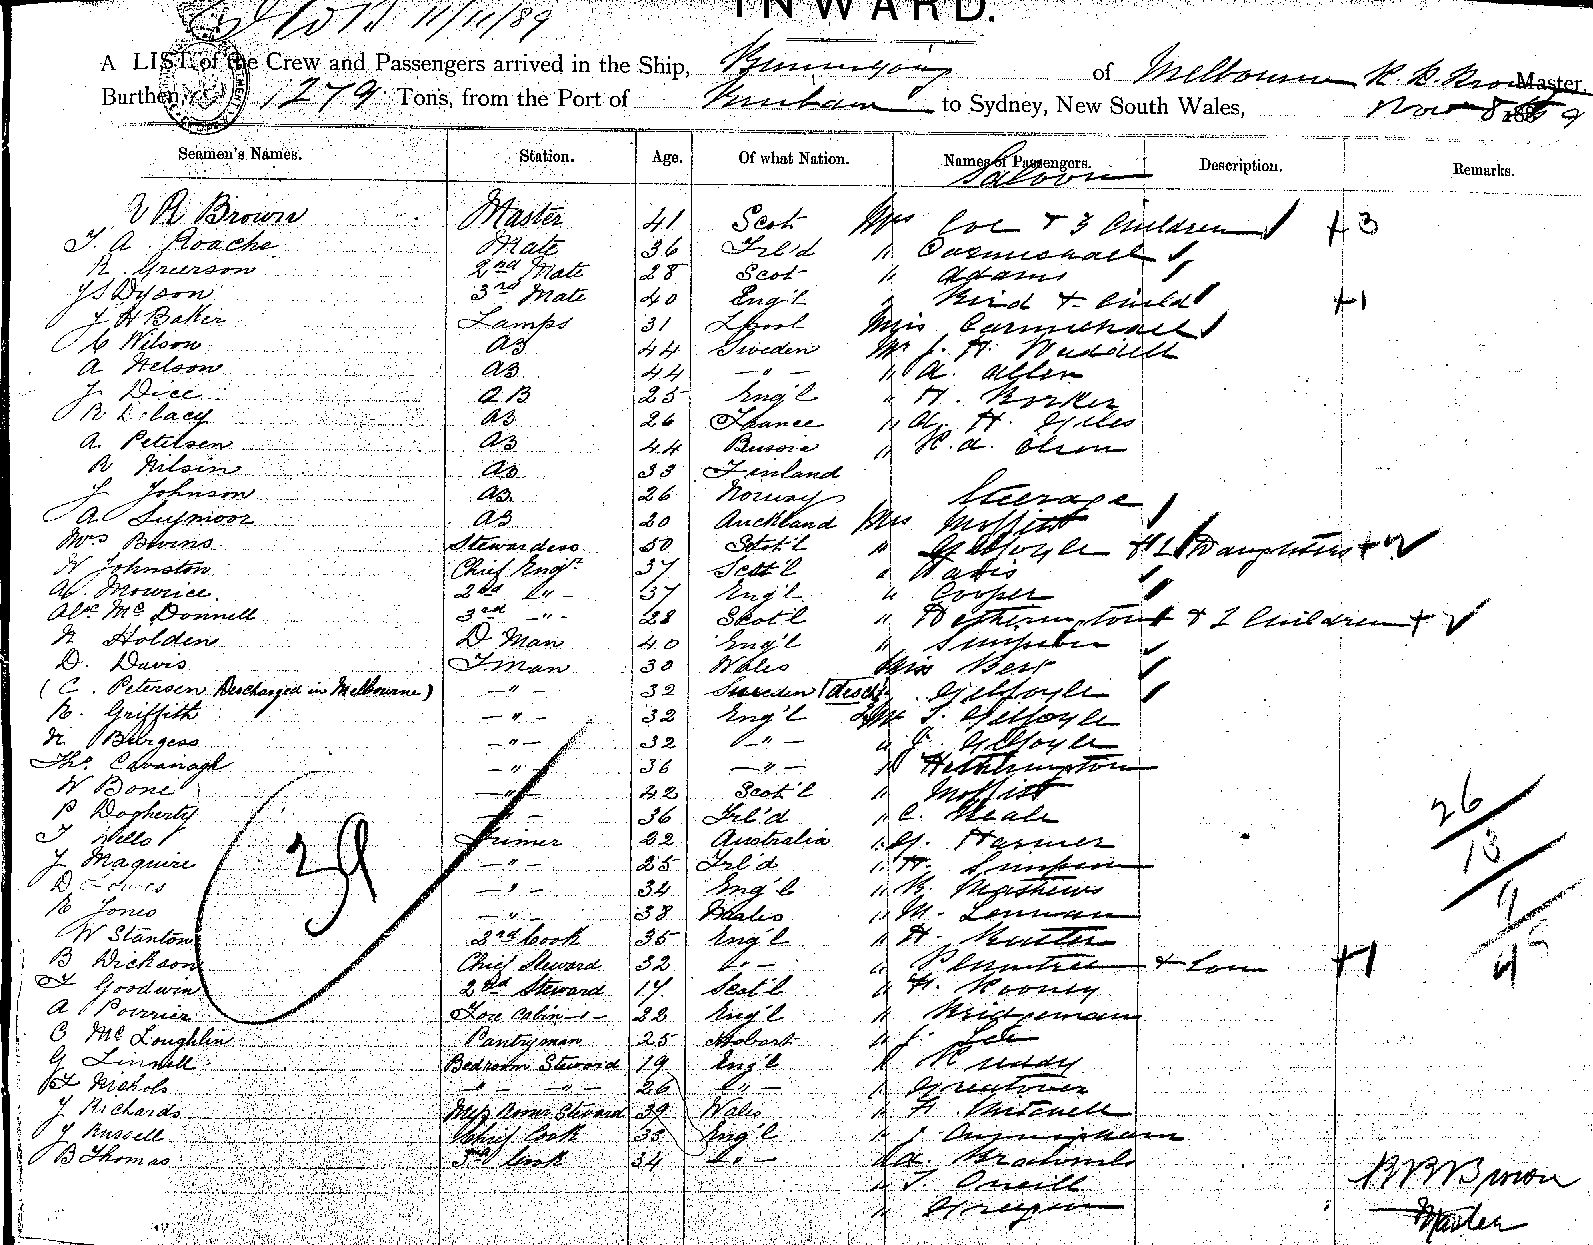 INWARD.
11/11/89
A LIST of the Crew and Passengers arrived in the Ship, of Melbourne Master
Burthen 1279 Tons, from the Port of to Sydney, New South Wales, Nov 8 1889
Seamen's Names. Station. Age. Of what Nation. Names of Passengers. Description. Remarks.
Saloon
R Brown Master 41 Scot Mrs Coe + 3 Children +3
T. A. Roache Mate 36 Irl'd " Carmichael
R. Grierson 2nd Mate 28 Scot " Adams
Dyson 3rd Mate 40 Eng'l " Bird + Child +1
J H Baker Lamps 31 Miss Carmichael
C Wilson AB 44 Sweden Mr J. H. Waddell
A Nelson AB 44 - " - " A. Allen
J Dice AB 25 Eng'l " H.
R Delacy AB 26 France " A. H. Giles
A Petelsen AB 44 Russia " R. A. Olson
R Nilsin AB 33 Finland
J Johnson AB 26 Norway Steerage
A Seymoor AB 20 Auckland Mrs Moffitt
Mrs Bivins Stewardess 50 Scot'l " Gelfoyle + 2 Daughters +2
W Johnston Chief Engr. 37 Scot'l " Davis
A. Mowrice. 2nd " - 37 Eng'l " Cooper
Alx. Mc Donnell 3rd - " - 28 Scot'l " Hetherington + 2 Children +
R Holden D Man 40 Eng'l " Simpson
D. Davis F man 30 Wales Miss Berg
( C. Petersen Descharged in Melbourne ) - " - 32 Sweden (disch) " Gelfoyle
R. Griffith - " - 32 Eng'l Mr T. Gelfoyle
R Burgess - " - 32 - " - " J. Gelfoyle
Thos. Cavanagh - " - 36 - " - " Hetherington
W Bone - " - 42 Scot'l " Moffitt
P Dogherty - " - 36 Irl'd " C. Neale 26
T Trimer 22 Australia " G. Harmer
J Maguire - " - 25 Irl'd " H. Simpson 13
D - " - 34 Eng'l " R. Mathews
R Jones - " - 38 Wales " M. Lennan
39
W Stanton 2nd Cook 35 Eng'l " H.
B Dickson Chief Steward 32 " - " Plumtree + Son +1
F Goodwin 2nd Steward 17 Scot'l " H. Rooney
A Poirrier Fore Cabin - " - 22 Eng'l " Bridgeman
C McLoughlin Pantryman 25 Hobart " J. Lee
G Linnell Bedroom Steward 19 Eng'l " R
Nichols " - " - 26 " -
J Richards Mess Room Steward 39 Wales " H. Mitchell
J Russell Chief Cook 35 Eng'l " J. Cunningham
B Thomas 3rd Cook 34 - " - " A.
" T. Oneill
"
R B Brown
Master